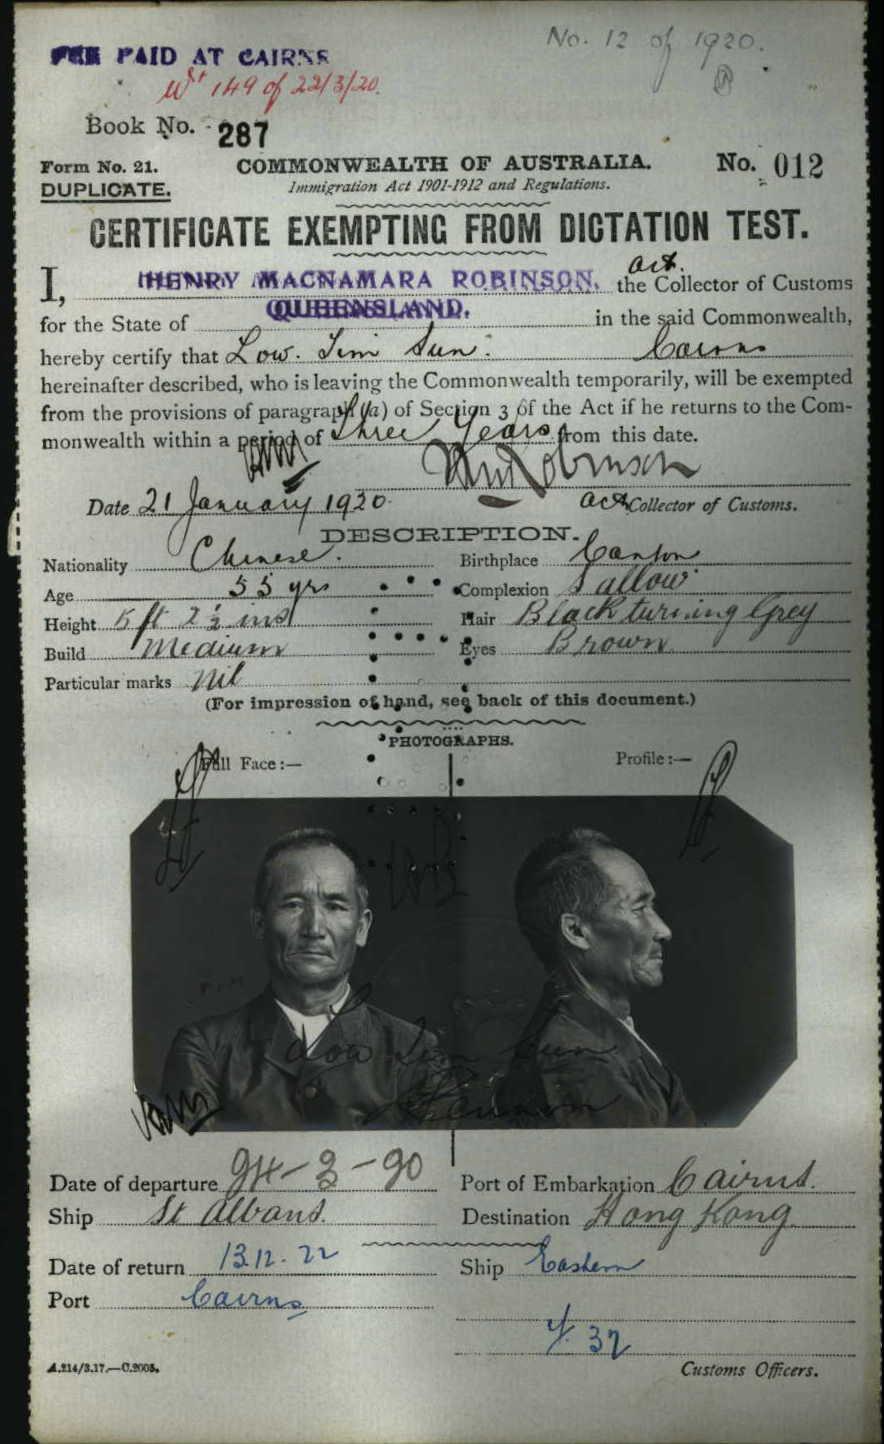 No. 12 of 1920.
FEE PAID AT CAIRNS
Wt 149 of 22/3/20.
Book No. 287
Form No. 21. COMMONWEALTH OF AUSTRALIA. No. 012
DUPLICATE. Immigration Act 1901-1912 and Regulations.
CERTIFICATE EXEMPTING FROM DICTATION TEST.
I, HENRY MACNAMARA ROBINSON, the act. Collector of Customs
for the State of QUEENSLAND. in the said Commonwealth,
hereby certify that Low Tim Sun. Cairns
hereinafter described, who is leaving the Commonwealth temporarily, will be exempted
from the provisions of paragraph (a) of Section 3 of the Act if he returns to the Com-
monwealth within a period of Three Years from this date.
Date 21 January 1920. act Collector of Customs.
DESCRIPTION.
Nationality Chinese. Birthplace Canton
Age 55 yrs Complexion Sallow
Height 5 ft 2½ ins Hair Black turning Grey
Build Medium Eyes Brown
Particular marks Nil
(For impression of hand, see back of this document.)
PHOTOGRAPHS.
Full Face:— Profile:—
Low Tim Sun
Date of departure 24-3-20 Port of Embarkation Cairns.
Ship St Albans. Destination Hong Kong
Date of return 13.12.22 Ship Eastern
Port Cairns
37
A.214/3.17.—C.2003. Customs Officers.